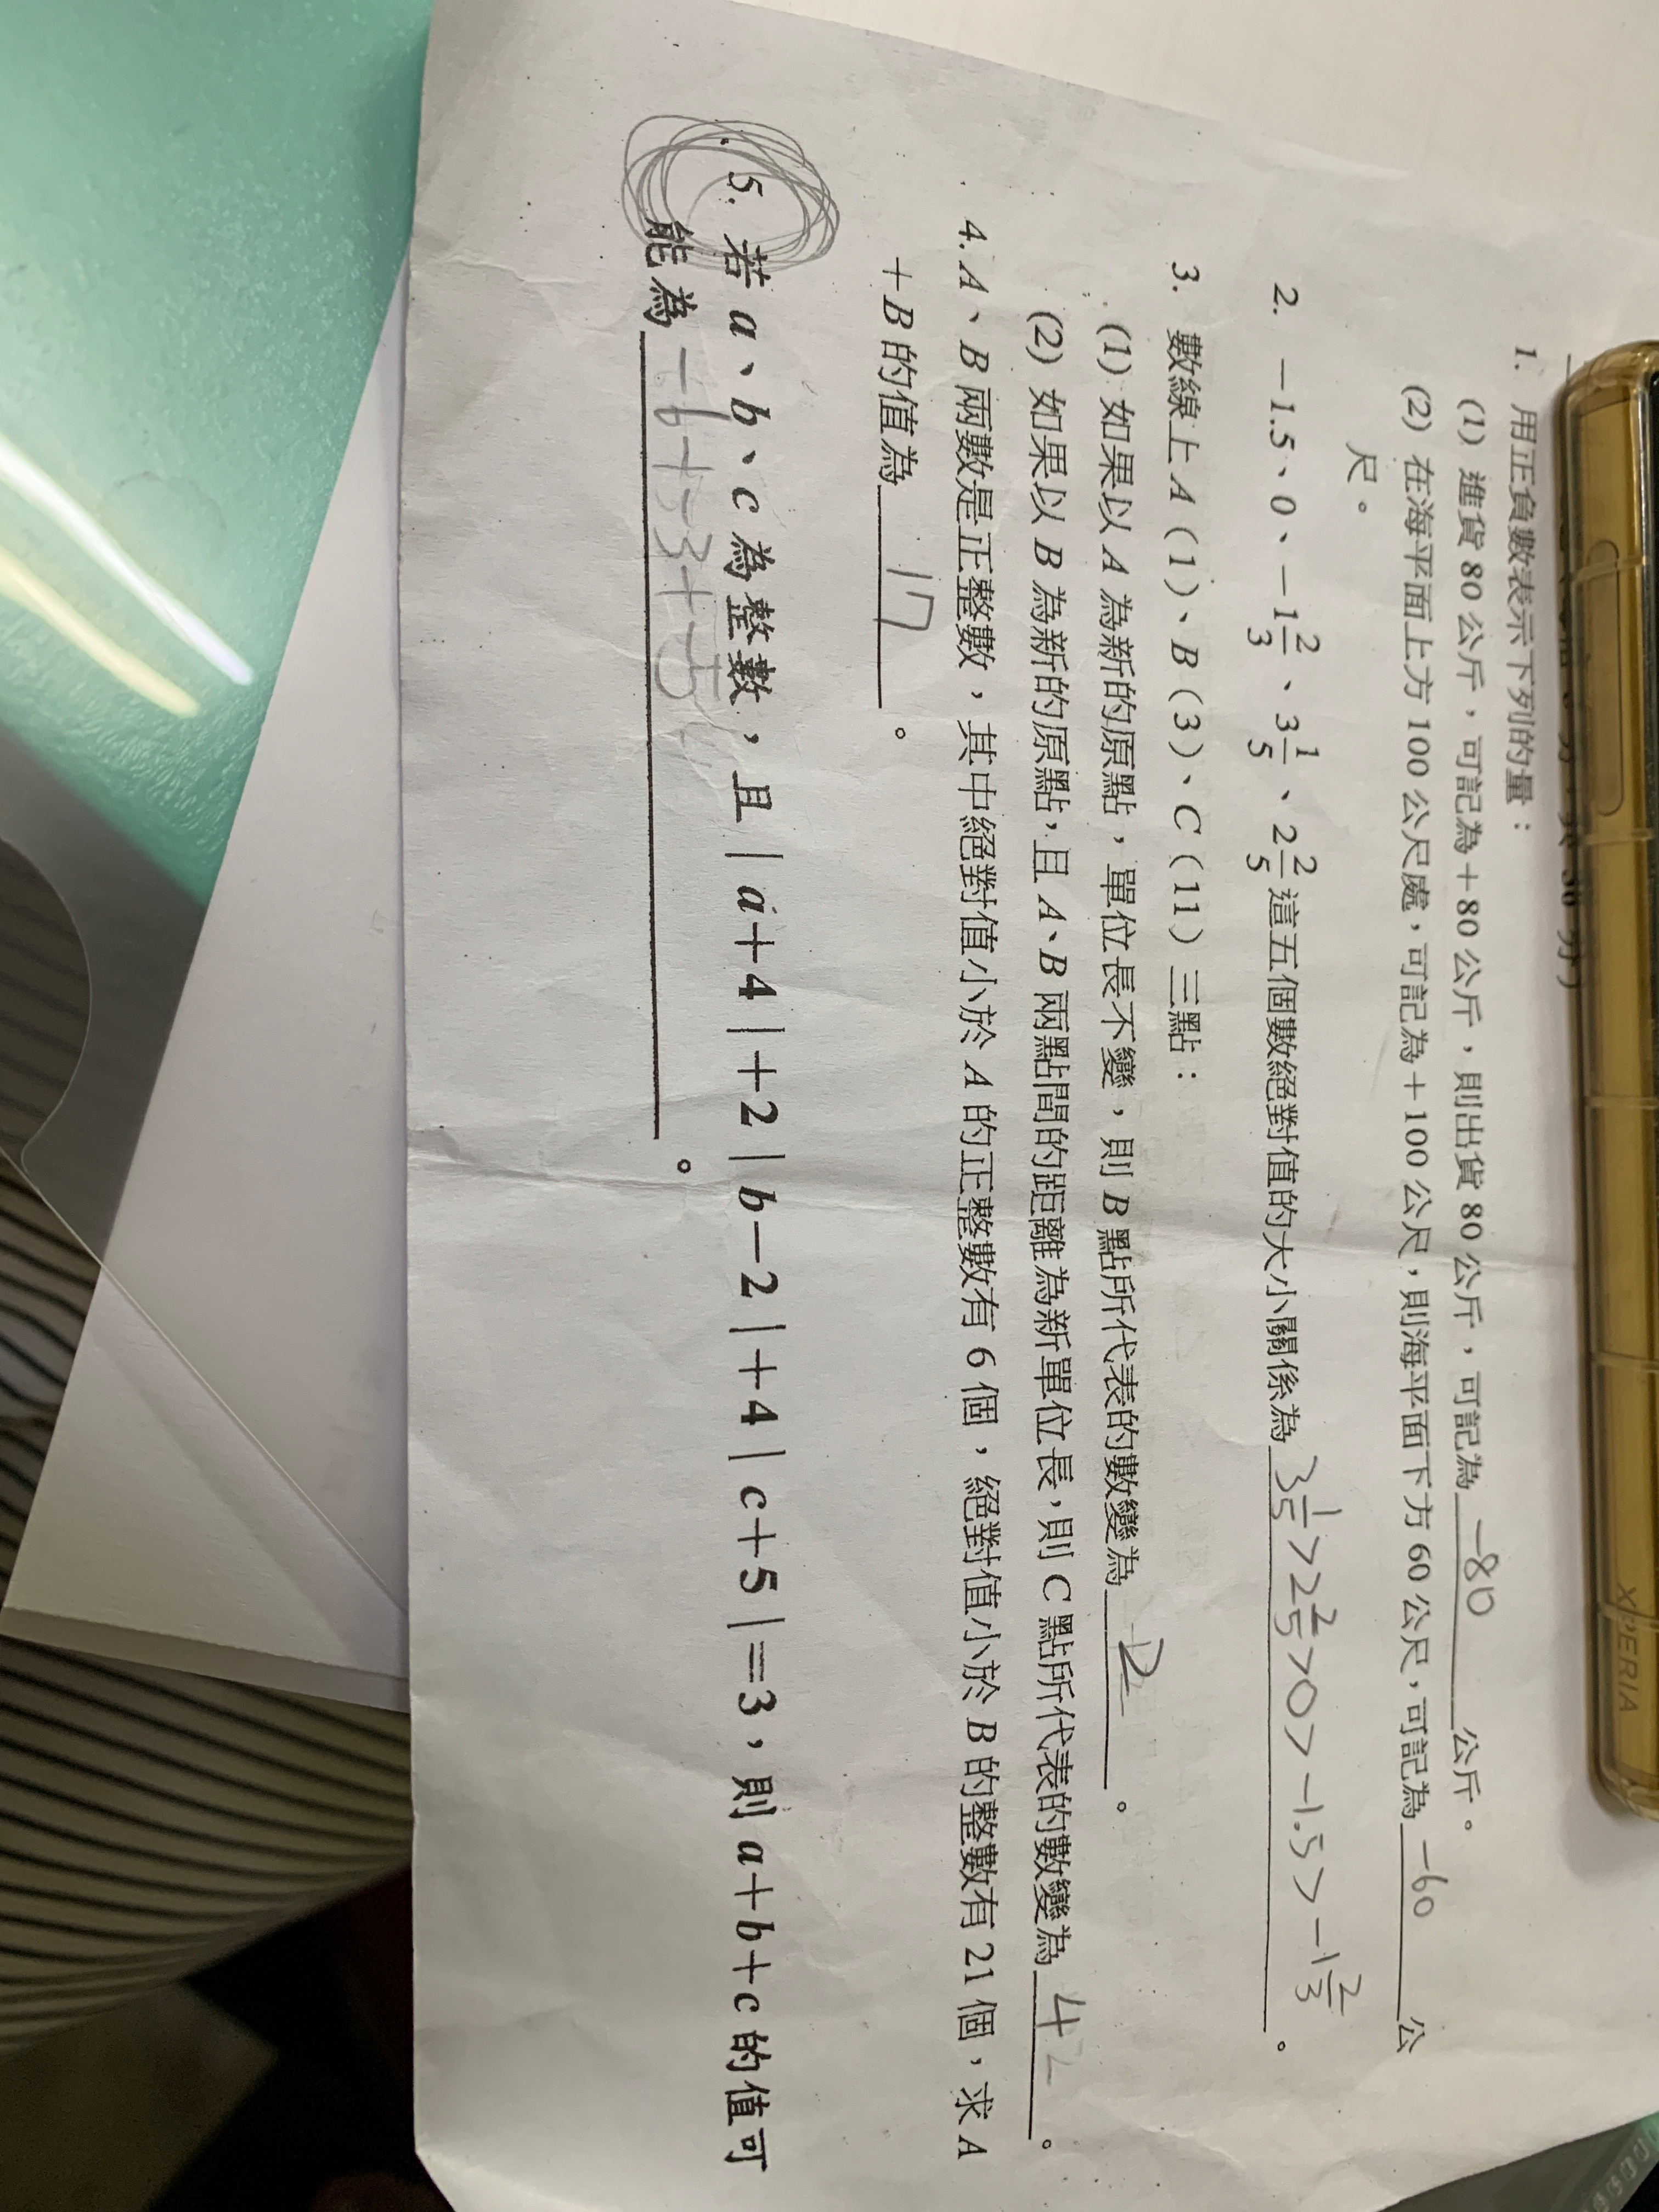 1. 用正負數表示下列的量：
(1) 進貨 80 公斤，可記為＋80 公斤，則出貨 80 公斤，可記為 －80 公斤。
(2) 在海平面上方 100 公尺處，可記為＋100 公尺，則海平面下方 60 公尺，可記為 －60 公
尺。
2. －1.5、0、－1 2/3、3 1/5、2 2/5 這五個數絕對值的大小關係為 3 1/5 > 2 2/5 > 0 > －1.5 > －1 2/3 。
3. 數線上 A（1）、B（3）、C（11）三點：
(1) 如果以 A 為新的原點，單位長不變，則 B 點所代表的數變為 2 。
(2) 如果以 B 為新的原點，且 A、B 兩點間的距離為新單位長，則 C 點所代表的數變為 4 。
4. A、B 兩數是正整數，其中絕對值小於 A 的正整數有 6 個，絕對值小於 B 的整數有 21 個，求 A
＋B 的值為 17 。
5. 若 a、b、c 為整數，且｜a＋4｜＋2｜b－2｜＋4｜c＋5｜＝3，則 a＋b＋c 的值可
能為 。
XPERIA